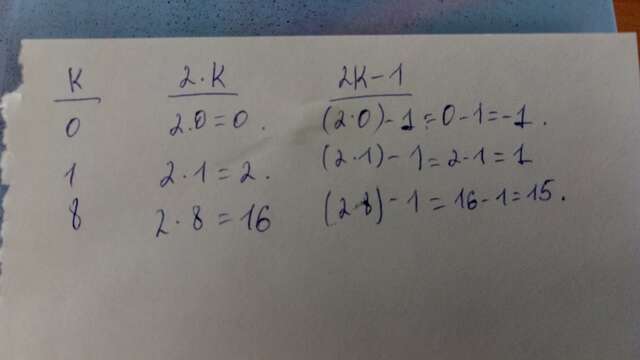 K 2·K 2K-1
0 2·0=0. (2·0)-1=0-1=-1.
1 2·1=2. (2·1)-1=2-1=1
8 2·8=16 (2·8)-1=16-1=15.